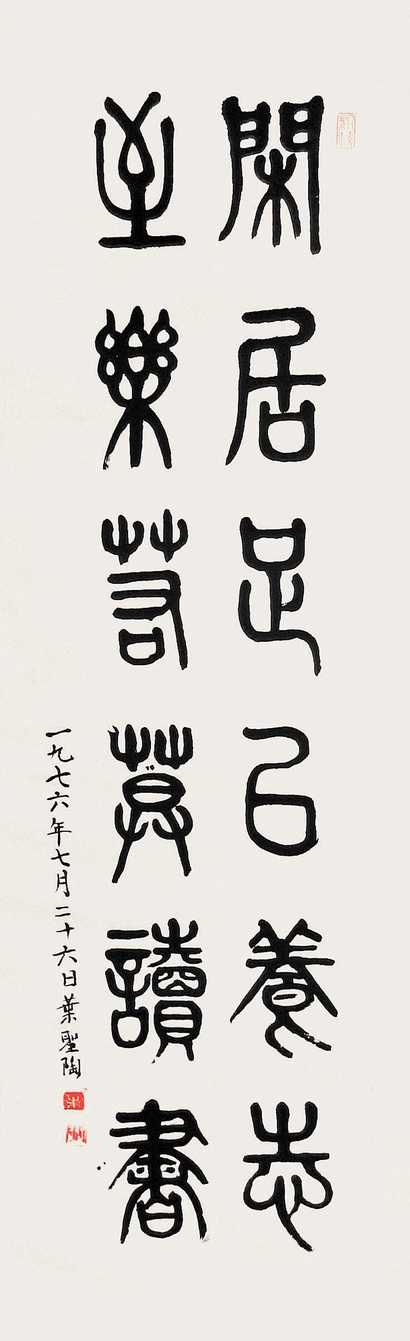 閑居足以養志
至樂莫若讀書
一九七六年七月二十六日葉聖陶